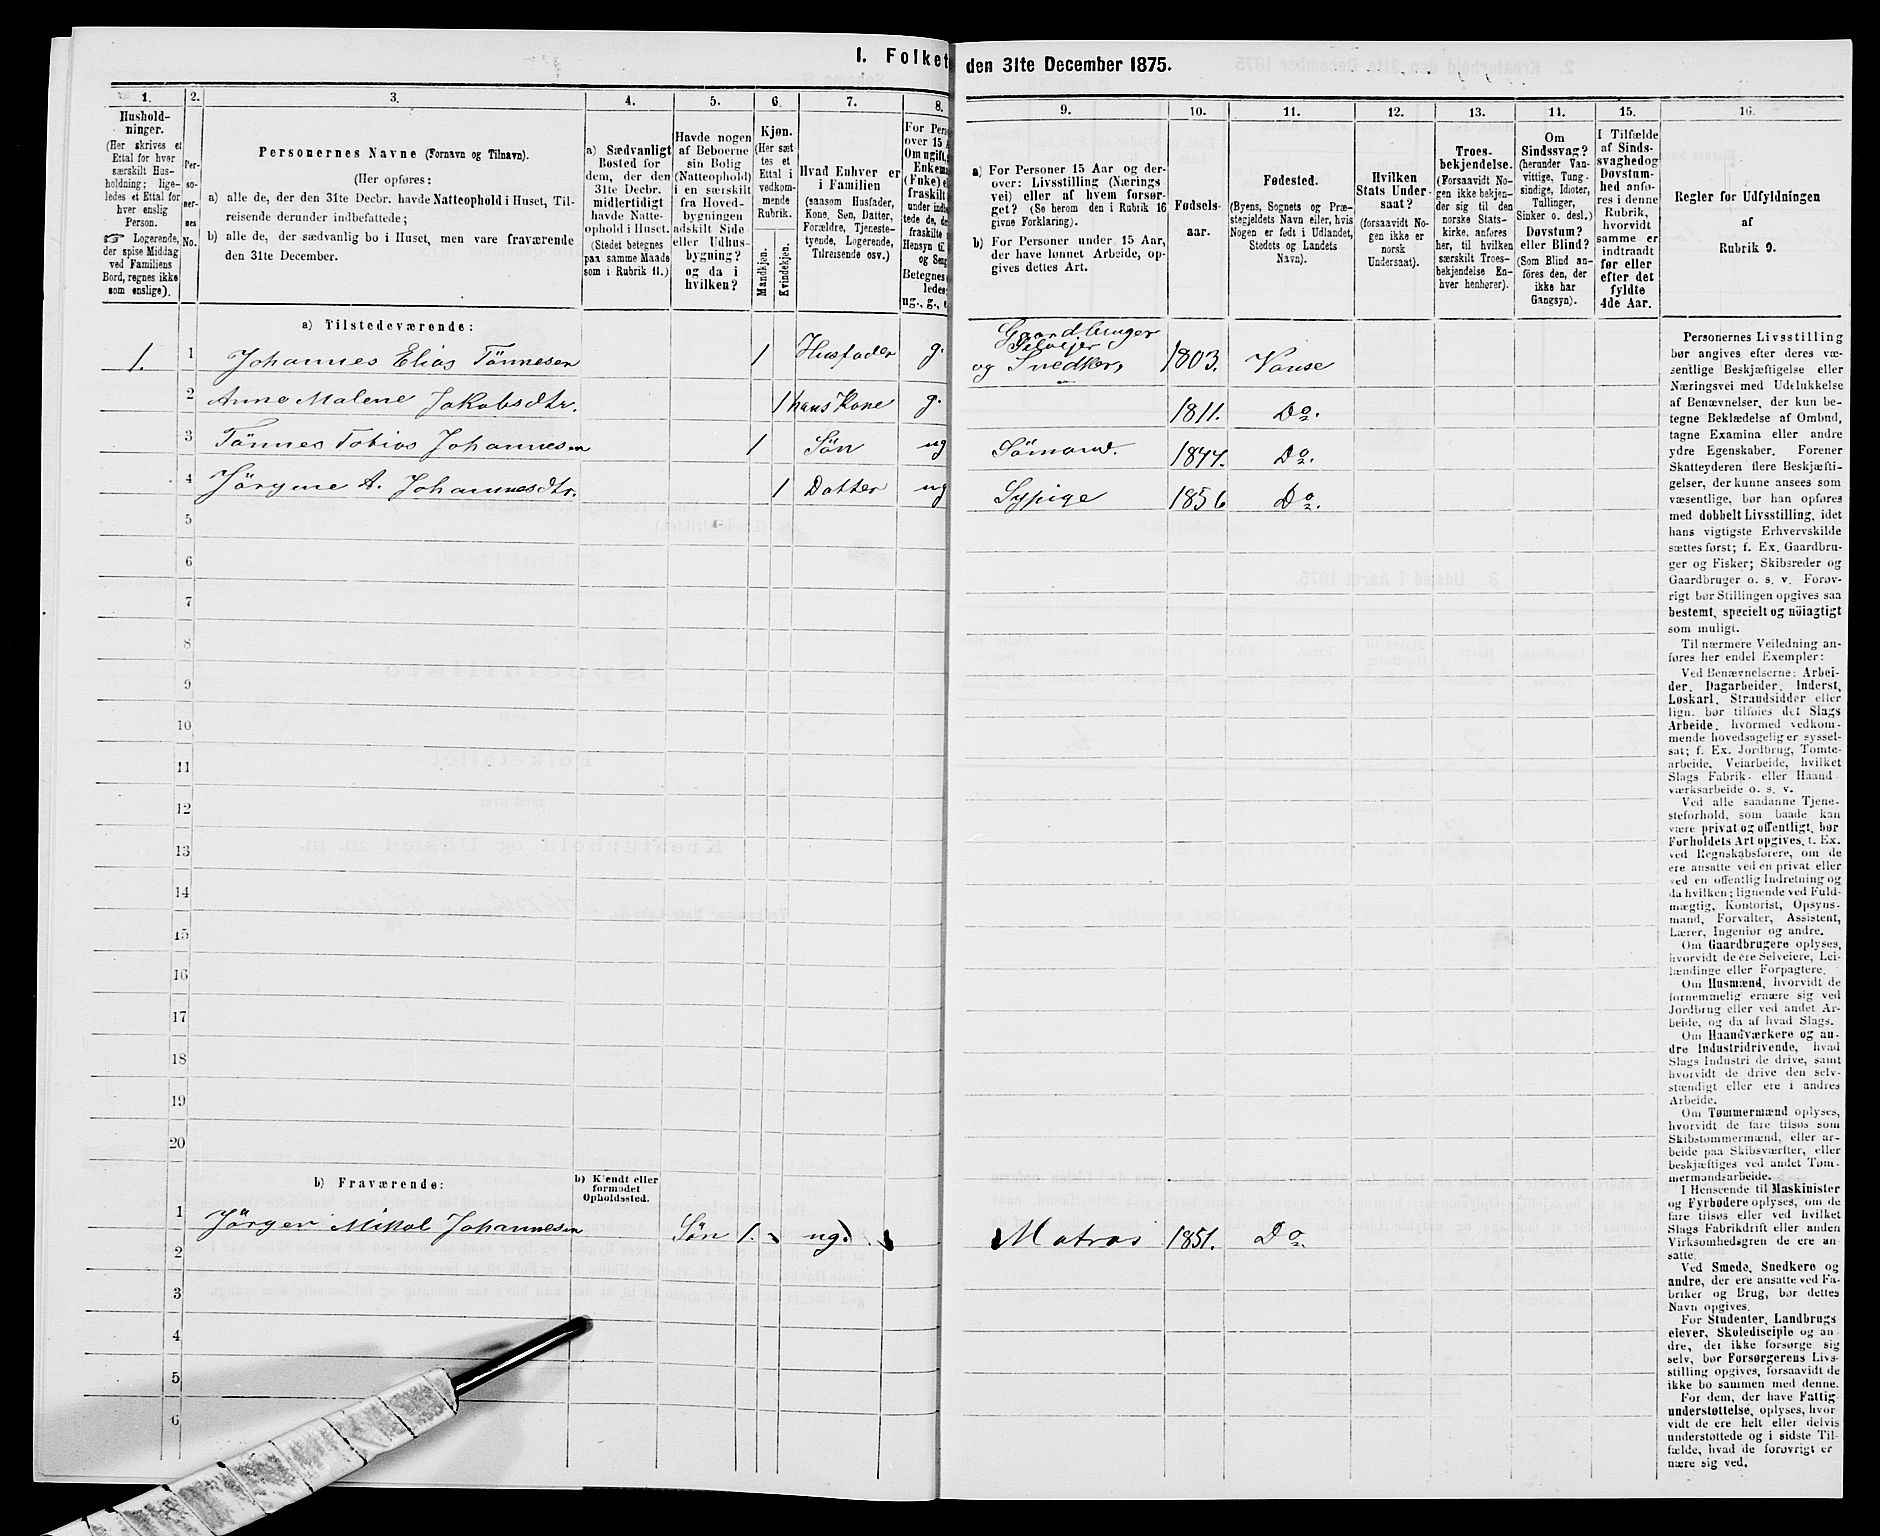 I. Folket
den 31te December 1875.
1.
2.
3.
4.
5.
6.
7.
8.
Hushold-
ninger.
(Her skrives et
Ettal for hver
særskilt Hus-
holdning; lige-
ledes et Ettal for
hver enslig
Person.
☞ Logerende,
der spise Middag
ved Familiens
Bord, regnes ikke
som enslige).
Per-
so-
ner-
nes
No.
Personernes Navne (Fornavn og Tilnavn).
(Her opføres:
a) alle de, der den 31te Decbr. havde Natteophold i Huset, Til-
reisende derunder indbefattede;
b) alle de, der sædvanlig bo i Huset, men vare fraværende
den 31te December.
a) Sædvanligt
Bosted for
dem, der den
31te Decbr.
midlertidigt
havde Natte-
ophold i Huset.
(Stedet betegnes
paa samme Maade
som i Rubrik 11.)
Havde nogen
af Beboerne
sin Bolig
(Natteophold)
i en særskilt
fra Hoved-
bygningen
adskilt Side
eller Udhus-
bygning?
og da i
hvilken?
Kjøn.
(Her sæt-
tes et
Ettal i
vedkom-
mende
Rubrik.
Mandkjøn.
Kvindekjøn.
Hvad Enhver er
i Familien
(saasom Husfader,
Kone, Søn, Datter,
Forældre, Tjeneste-
tyende, Logerende,
Tilreisende osv.)
For Pers
over 15 A
Om ugift,
Enkema
(Enke) e
fraskilt
under indb
tede de, de
fraskilte
Hensyn til
og Seng
Betegnes
ledes:
ug., g., e
a) Tilstedeværende:
1. 1 Johannes Elias Tönnesen 1 Husfader g.
2 Anne Malene Jakobsdtr. 1 hans Kone g.
3 Tönnes Tobias Johannesen 1 Sön ug
4 Jörgine A. Johannesdtr. 1 Datter ug
5
6
7
8
9
10
11
12
13
14
15
16
17
18
19
20
b) Fraværende:
b) Kjendt eller
formodet
Opholdssted.
1 Jörgen Mikal Johannesen Sön 1. ug.
2
3
4
5
6
9.
10.
11.
12.
13.
14.
15.
16.
a) For Personer 15 Aar og der-
over: Livsstilling (Nærings-
vei) eller af hvem forsør-
get? (Se herom den i Rubrik 16
givne Forklaring).
b) For Personer under 15 Aar,
der have lønnet Arbeide, op-
gives dettes Art.
Fødsels-
aar.
Fødested.
(Byens, Sognets og Præ-
stegjeldets Navn eller, hvis
Nogen er født i Udlandet,
Stedets og Landets
Navn).
Hvilken
Stats Under-
saat?
(forsaavidt No-
gen ikke er
norsk
Undersaat).
Troes-
bekjendelse.
(Forsaavidt No-
gen ikke bekjen-
der sig til den
norske Stats-
kirke, anføres
her, til hvilken
særskilt Troes-
bekjendelse En-
hver henhører).
Om
Sindssvag?
(herunder Van-
vittige, Tung-
sindige, Idioter,
Tullinger,
Sinker o. desl.)
Døvstum?
eller Blind?
(Som Blind an-
føres den, der
ikke har
Gangsyn).
I Tilfælde
af Sinds-
svaghed og
Døvstum-
hed anfø-
res i denne
Rubrik,
hvorvidt
samme er
indtraadt
før eller
efter det
fyldte
4de Aar.
Regler for Udfyldningen
af
Rubrik 9.
Gaardbruger
Selvejer
og Snedker, 1803. Vanse
1811. Do.
Sömand. 1844. Do.
Sypige 1856 Do.
Matros 1851. Do.
Personernes Livsstilling
bør angives efter deres væ-
sentlige Beskjæftigelse eller
Næringsvei med Udelukkelse
af Benævnelser, der kun be-
tegne Beklædelse af Ombud,
tagne Examina eller andre
ydre Egenskaber. Forener
Skatteyderen flere Beskjæfti-
gelser, der kunne ansees som
væsentlige, bør han opføres
med dobbelt Livsstilling, idet
hans vigtigste Erhvervskilde
sættes først; f. Ex. Gaardbru-
ger og Fisker; Skibsreder og
Gaardbruger o. s. v. Forøv-
rigt bør Stillingen opgives saa
bestemt, specielt og nöiagtigt
som muligt.
Til nærmere Veiledning an-
føres her endel Exempler:
Ved Benævnelserne: Arbei-
der, Dagarbeider, Inderst,
Løskarl, Strandsidder eller
lign. bør tilføies det Slags
Arbeide, hvormed vedkom-
mende hovedsagelig er syssel-
sat; f. Ex. Jordbrug, Tomte-
arbeide, Veiarbeide, hvilket
Slags Fabrik- eller Haand-
værksarbeide o. s. v.
Ved alle saadanne Tjene-
steforhold, som baade kan
være privat og offentligt, bør
Forholdets Art opgives, t. Ex.
ved Regnskabsførere, om de
ere ansatte ved en privat eller
ved en offentlig Indretning og
da hvilken; lignende ved Fuld-
mægtig, Kontorist, Opsyns-
mand, Forvalter, Assistent,
Lærer, Ingeniør og andre.
Om Gaardbrugere oplyses,
hvorvidt de ere Selveiere, Lei-
lændinge eller Forpagtere.
Om Husmænd, hvorvidt de
fornemmelig ernære sig ved
Jordbrug eller ved andet Ar-
beide, og da af hvad Slags.
Om Haandværkere og an-
dre Industridrivende, hvad
Slags Industri de drive, samt
hvorvidt de drive den selv-
stændigt eller ere i andres
Arbeide.
Om Tømmermænd oplyses,
hvorvidt de fare tilsøs som
Skibstømmermænd, eller ar-
beide paa Skibsværfter, eller
beskjæftiges ved andet Tøm-
mermandarbeide.
I Henseende til Maskinister
og Fyrbødere oplyses, om de
fare tilsøs eller ved hvilket
Slags Fabrikdrift eller anden
Virksomhedsgren de ere an-
satte.
Ved Smede, Snedkere og
andre, der ere ansatte ved Fa-
briker og Brug, bør dettes
Navn opgives.
For Studenter, Landbrugs-
elever, Skoledisciple og an-
dre, det ikke forsørge sig
selv, bør Forsørgerens Livs-
stilling opgives, forsaavidt de
ikke bo sammen med denne.
For dem, der have Fattig-
understøttelse, oplyses, hvor-
vidt de ere helt eller delvis
understøttede og i sidste Til-
fælde, hvad de forøvrigt er-
nære sig ved.